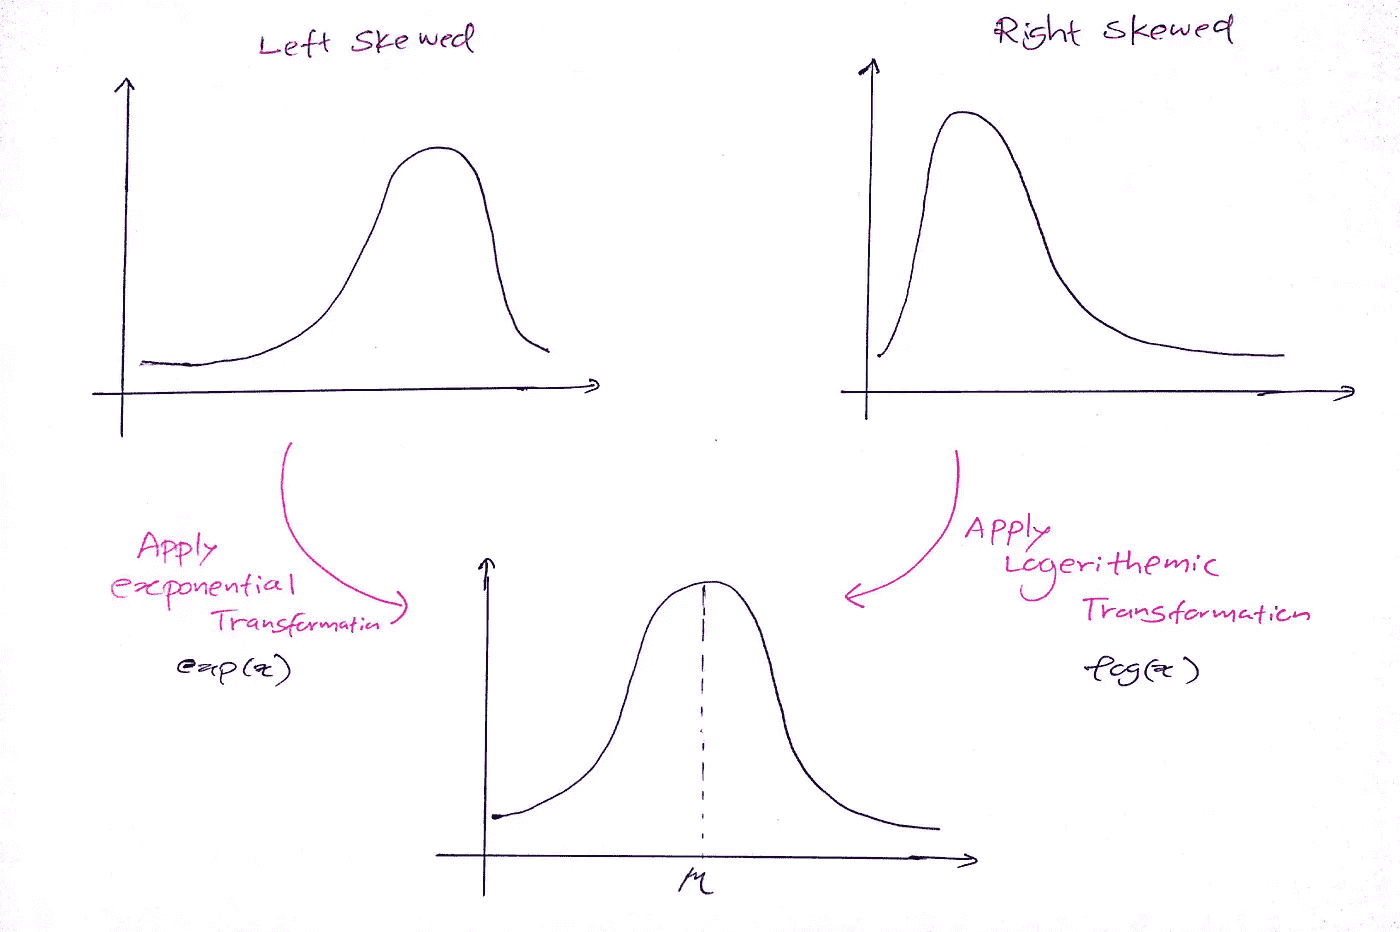 Left Skewed
Right Skewed
Apply
exponential
Transformation
exp(x)
Apply
Logerithemic
Transformation
log(x)
μ